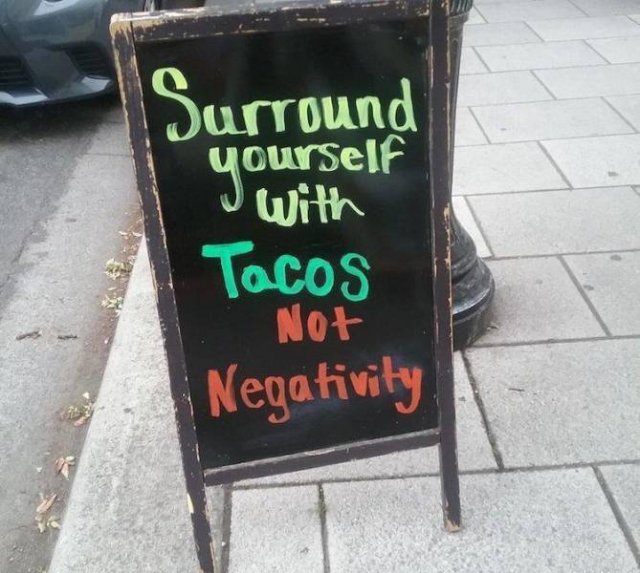 Surround
yourself
with
Tacos
Not
Negativity